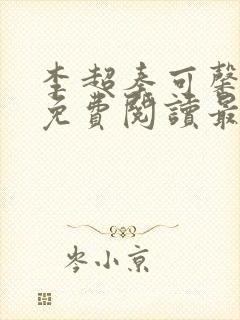 李超秦可馨
免費閱讀最
岑小京